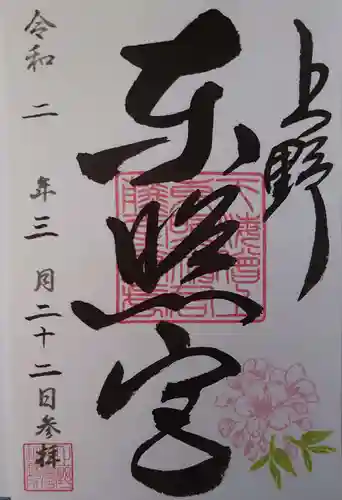 上野
東照宮
令和二年三月二十二日参拝